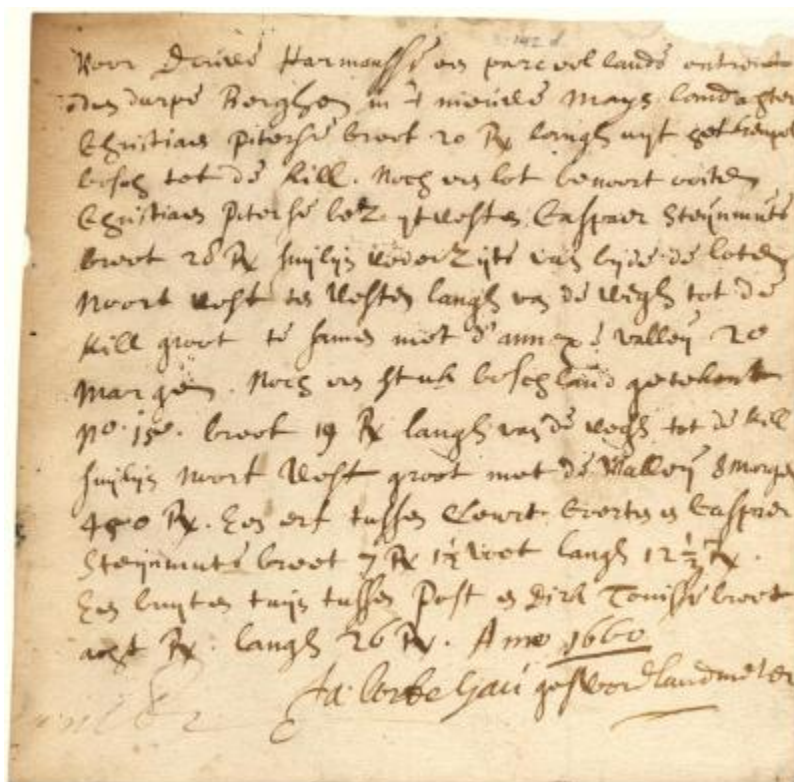 142 d
Voor Douwe Harmansse een parceel lands ontrent
den durpe Berghen in 't nieuwe Mays land achter
Christiaen Pieterse breet 20 R langh uyt het kreupel
bosch tot de kill. Noch een lot benoort oosten
Christiaen Pieterse bez. ytwesten Caspaer Steynmuts
breet 28 R suylijn weder Zijts van beyde de loten
Noort west ten Westen langh van de wegh tot de
kill groot te samen met d'annexe valley 20
Margen. Noch een stuk boschland getekent
No. 150. breet 19 R langh van de wegh tot de kill
suylijn Noort West groot met de Valley 8 morgen
450 R. Een erf tussen Everts en Caspaer
Steynmuts breet 7 R 1½ voet langh 12½ R.
Een buyten tuyn tussen Post en Dirk Tonisse breet
acht R. langh 26 R. Anno 1660
Ja. Cortelyau geswor landmeter